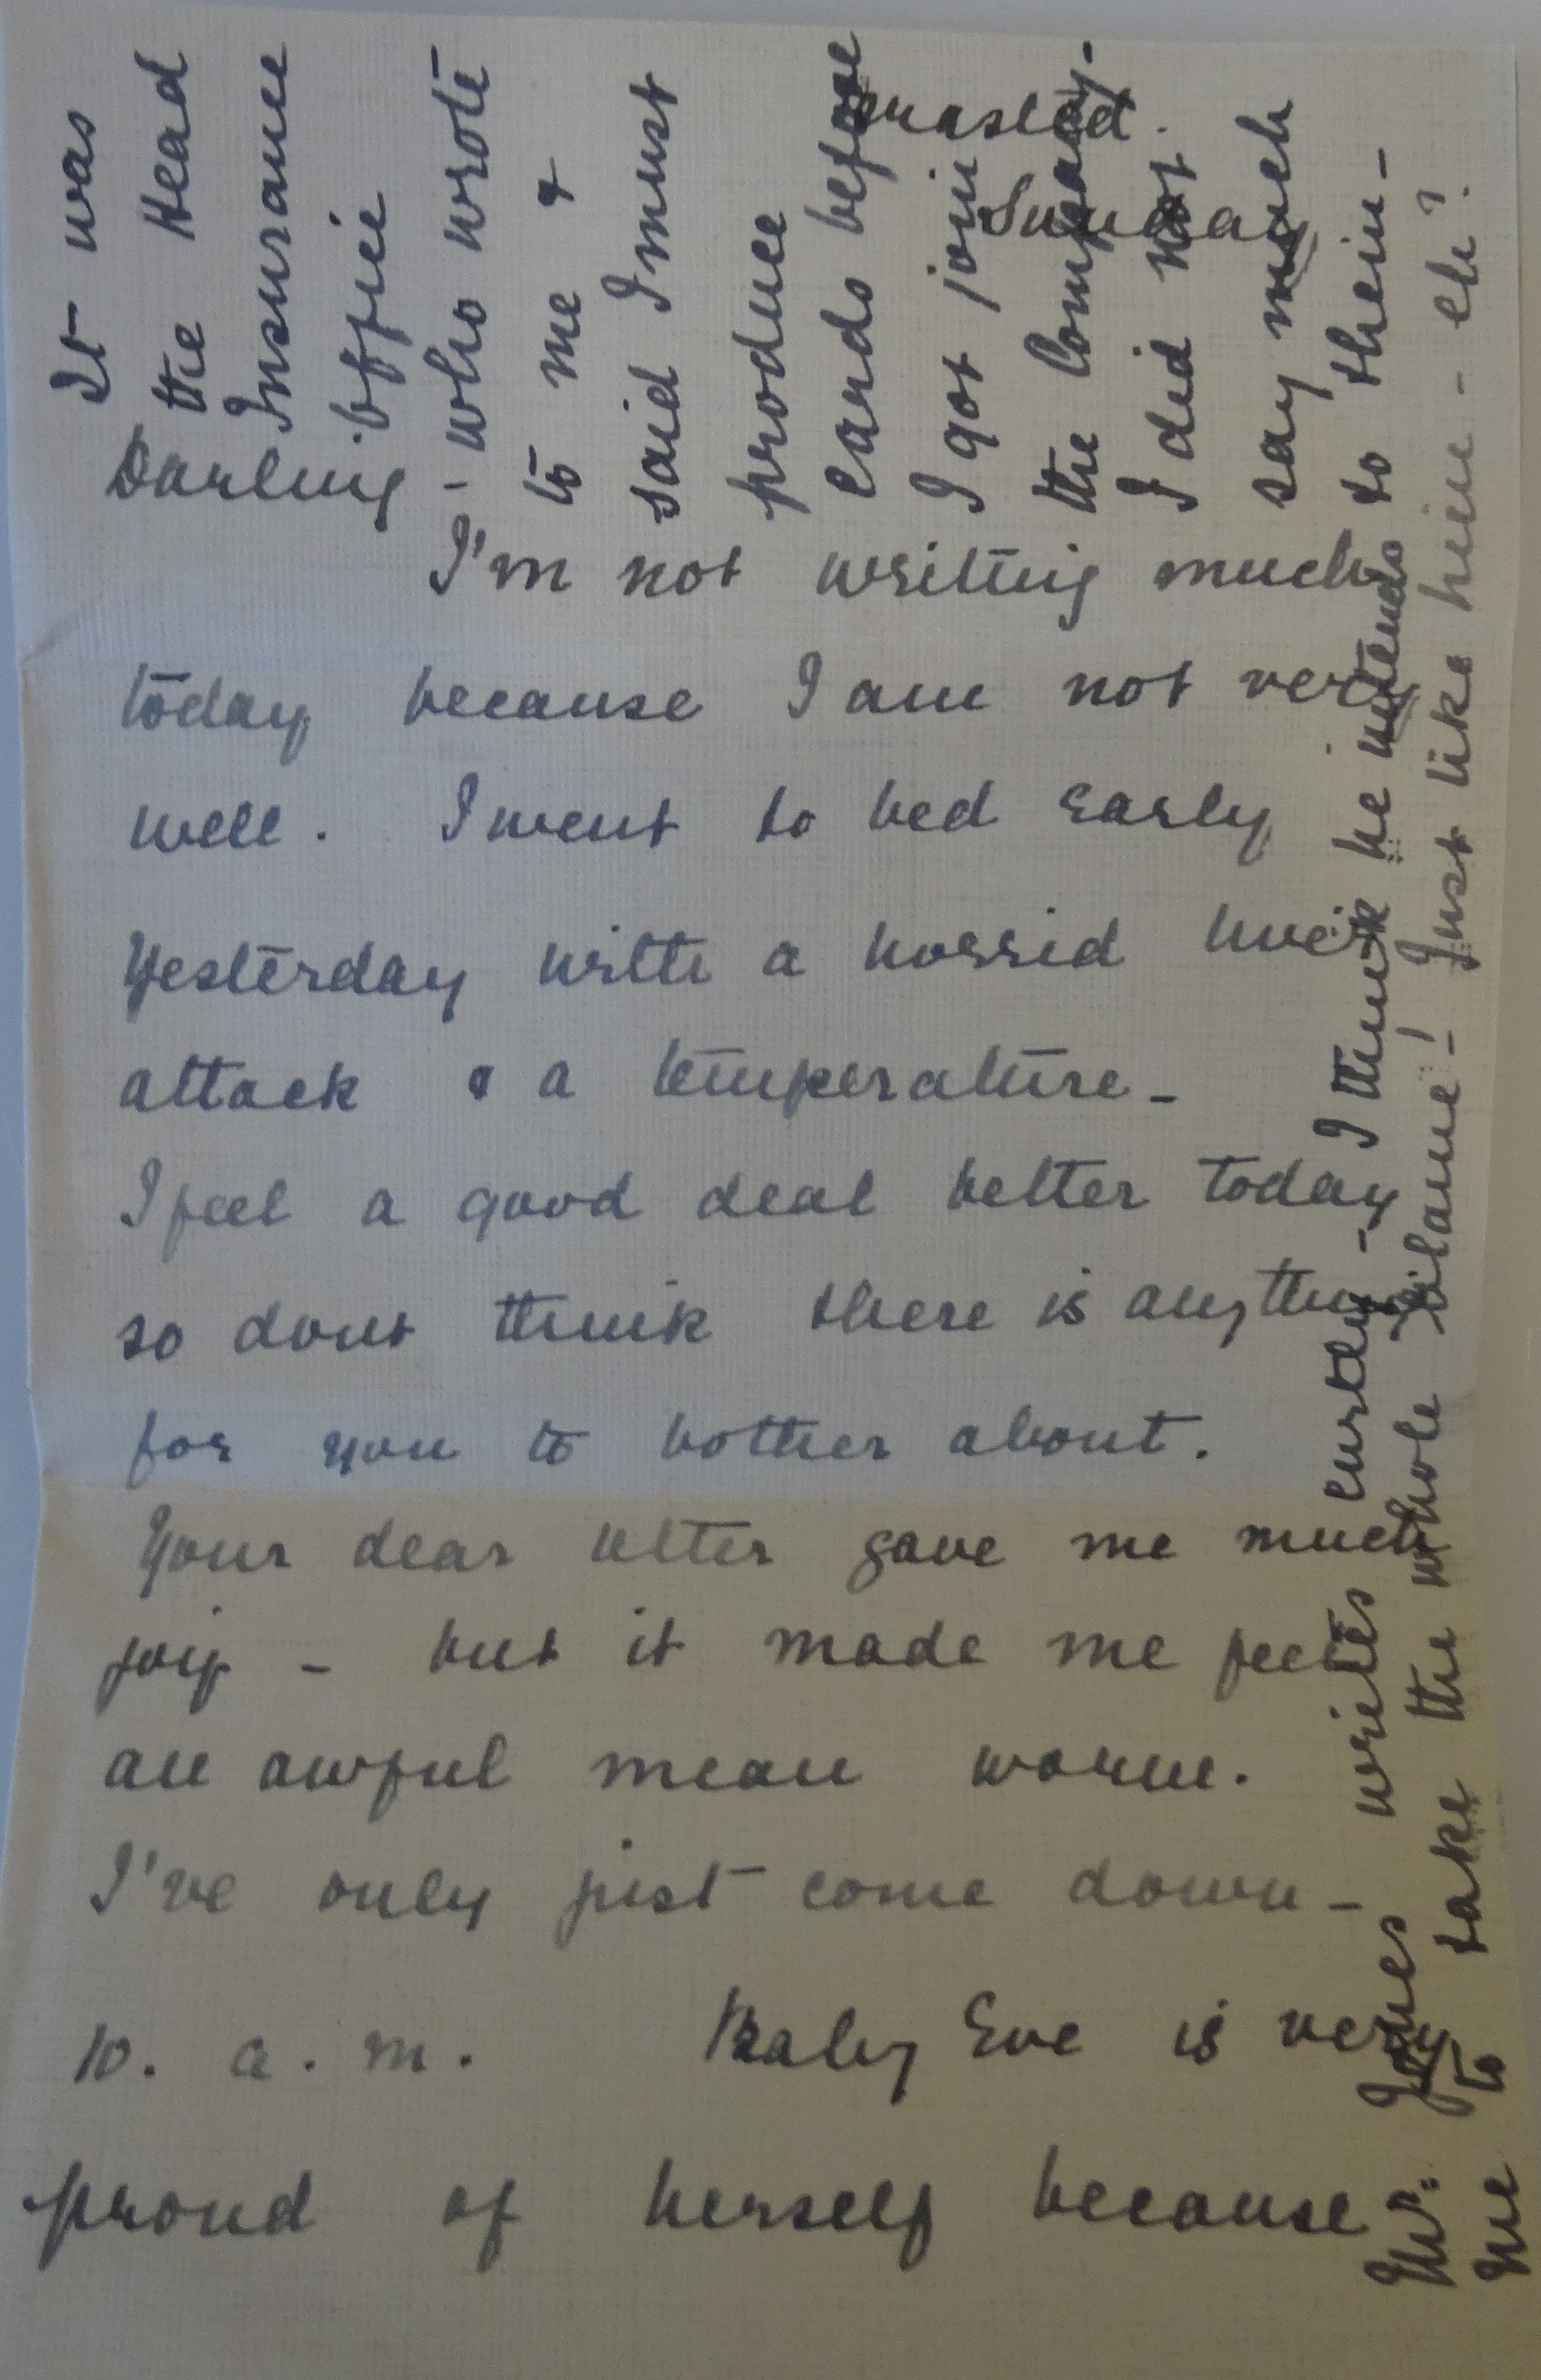 Sunday
Darling
I'm not writing much
today because I am not very
well. I went to bed early
yesterday with a horrid liver
attack & a temperature -
I feel a good deal better today
so dont think there is anything
for you to bother about.
Your dear letter gave me much
joy - but it made me feel
an awful mean worm.
I've only just come down -
10. a.m. Baby Eve is very
proud of herself because
It was
the Head
Insurance
Office
- who wrote
to me &
said I must
produce
cards before
I got join
the Company -
I did not
say much
to them -
Mr. Jones writes curtly - I think he intends
me to take the whole blame! Just like him - eh?